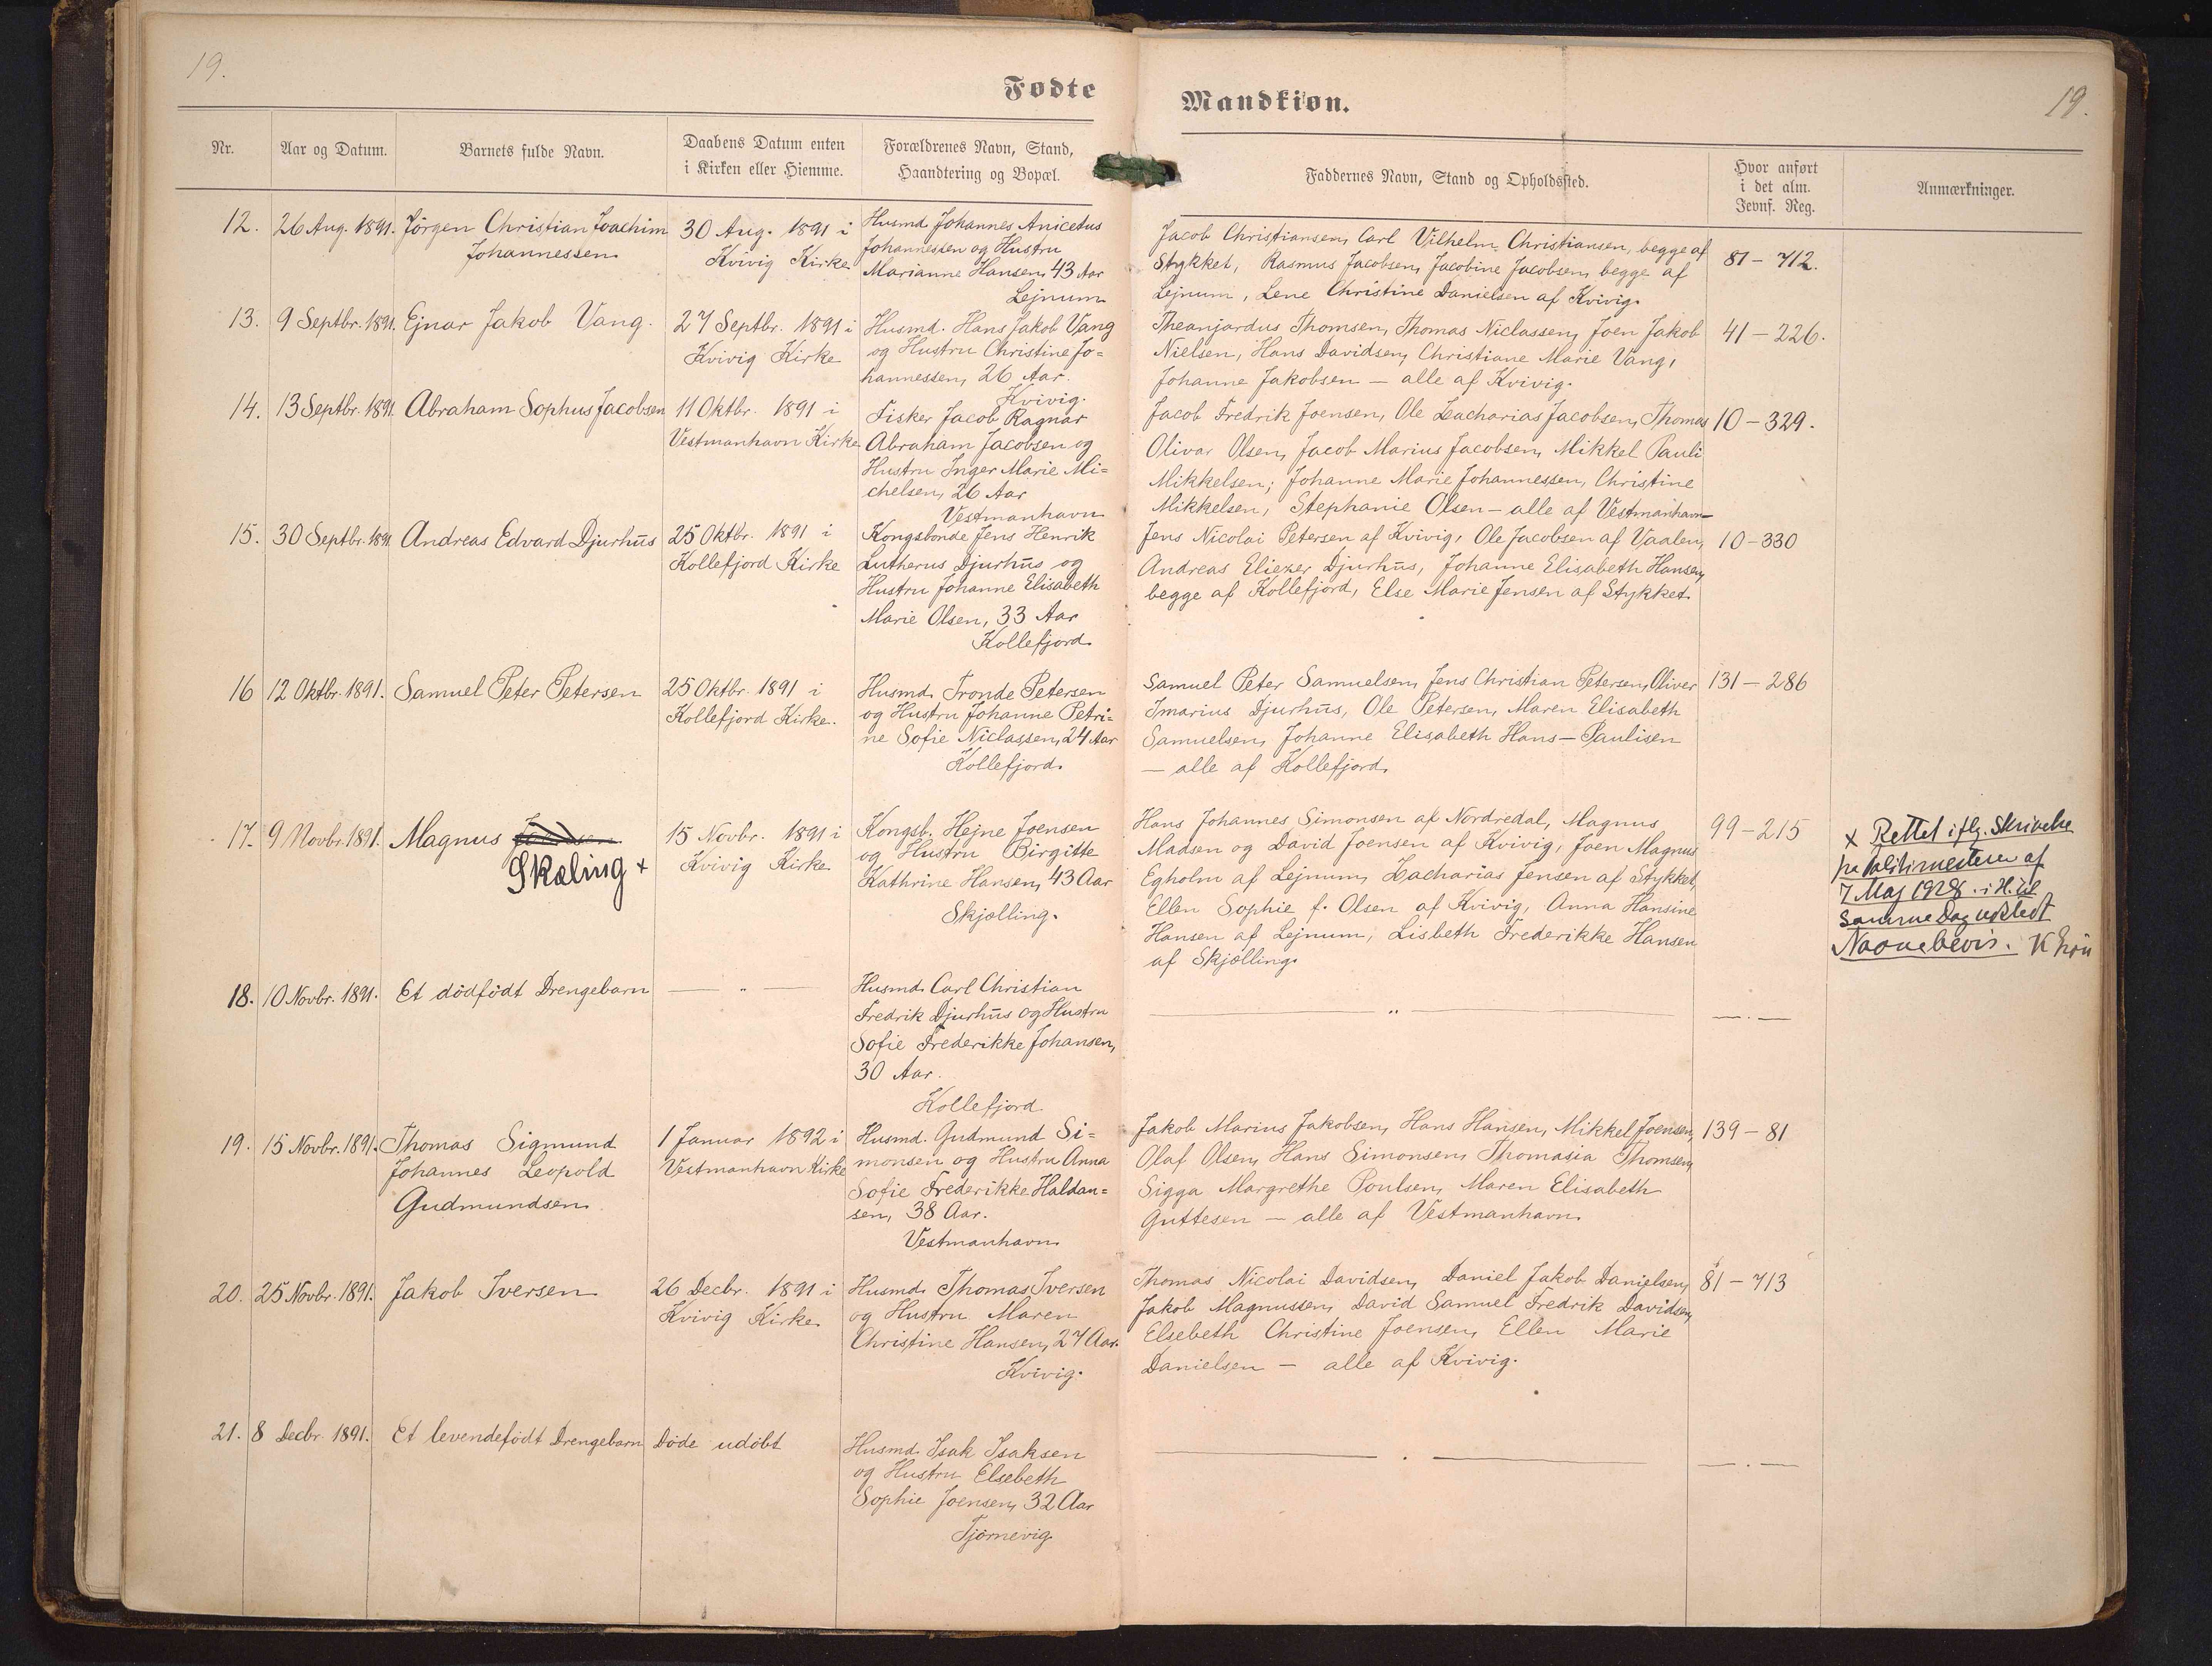 19.
Fødte
Nr.
Aar og Datum.
Barnets fulde Navn.
Daabens Datum enten
i Kirken eller Hiemme.
Forældrenes Navn, Stand,
Haandtering og Bopæl.
12.
26 Aug. 1891.
Jörgen Christian Joachim
Johannessen
30 Aug. 1891 i
Kvivig Kirke
Husmd. Johannes Anicetus
Johannessen og Hustru
Marianne Hansen, 43 Aar
Lejnum
13.
9 Septbr. 1891.
Ejnar Jakob Vang.
27 Septbr. 1891 i
Kvivig Kirke
Husmd. Hans Jakob Vang
og Hustru Christine Jo=
hannessen, 26 Aar.
Kvivig.
14.
13 Septbr. 1891.
Abraham Sophus Jacobsen
11 Oktbr. 1891 i
Vestmanhavn Kirke
Fisker Jacob Ragnar
Abraham Jacobsen og
Hustru Inger Marie Mi=
chelsen, 26 Aar
Vestmanhavn
15.
30 Septbr. 1891
Andreas Edvard Djurhūs
25 Oktbr. 1891 i
Kollefjord Kirke
Kongsbonde Jens Henrik
Lutherus Djurhūs og
Hustru Johanne Elisabeth
Marie Olsen, 33 Aar
Kollefjord
16
12 Oktbr. 1891.
Samuel Peter Petersen
25 Oktbr. 1891 i
Kollefjord Kirke.
Husmd. Tronde Petersen
og Hustru Johanne Petri=
ne Sofie Niclassen, 24 Aar
Kollefjord.
17.
9 Novbr. 1891.
Magnus
Skæling +
15 Novbr. 1891 i
Kvivig Kirke
Kongsb. Hejne Joensen
og Hustru Birgitte
Kathrine Hansen, 43 Aar
Skjælling.
18.
10 Novbr. 1891.
Et dödfödt Drengebarn
— " —
Husmd. Carl Christian
Fredrik Djurhūs og Hustru
Sofie Frederikke Johansen,
30 Aar.
Kollefjord
19.
15 Novbr. 1891.
Thomas Sigmund
Johannes Leopold
Gudmundsen.
1 Januar 1892 i
Vestmanhavn Kirke
Husmd. Gudmund Si=
monsen og Hustru Anna
Sofie Frederikke Haldan=
sen, 38 Aar.
Vestmanhavn
20.
25 Novbr. 1891.
Jakob Iversen
26 Decbr. 1891 i
Kvivig Kirke
Husmd. Thomas Iversen
og Hustru Maren
Christine Hansen, 27 Aar.
Kvivig.
21.
8 Decbr. 1891.
Et levendefödt Drengebarn
Döde udöbt
Husmd. Isak Isaksen
og Hustru Elsebeth
Sophie Joensen, 32 Aar
Tjörnevig
Mandkiøn.
19.
Faddernes Navn, Stand og Opholdssted.
Hvor anført
i det alm.
Jevnf. Reg.
Anmærkninger.
Jacob Christiansen, Carl Vilhelm Christiansen, begge af
Stykket, Rasmus Jacobsen, Jacobine Jacobsen, begge af
Lejnum, Lene Christine Danielsen af Kvivig.
81 – 712.
Theanjardus Thomsen, Thomas Niclassen, Joen Jakob
Nielsen, Hans Davidsen, Christiane Marie Vang,
Johanne Jakobsen — alle af Kvivig.
41 – 226.
Jacob Fredrik Joensen, Ole Zacharias Jacobsen, Thomas
Olivar Olsen, Jacob Marius Jacobsen, Mikkel Pauli
Mikkelsen; Johanne Marie Johannessen, Christine
Mikkelsen, Stephanie Olsen — alle af Vestmanhavn
10 – 329.
Jens Nicolai Petersen af Kvivig, Ole Jacobsen af Vaalen,
Andreas Eliezer Djurhūs, Johanne Elisabeth Hansen,
begge af Kollefjord, Else Marie Jensen af Stykket.
10 – 330
Samuel Peter Samuelsen, Jens Christian Petersen, Oliver
Imarius Djurhūs, Ole Petersen, Maren Elisabeth
Samuelsen, Johanne Elisabeth Hans–Paulisen
— alle af Kollefjord.
131 – 286
Hans Johannes Simonsen af Nordredal, Magnus
Madsen og David Joensen af Kvivig, Joen Magnus
Egholm af Lejnum, Zacharias Jensen af Stykket,
Ellen Sophie f. Olsen af Kvivig, Anna Hansine
Hansen af Lejnum, Lisbeth Frederikke Hansen
af Skjælling.
99 – 215
+ Rettet iflg. Skrivelse
fra Politimesteren af
7 Maj 1928. i H. til
samme Dag udstedt
Navnebevis.
— " —
— . —
Jakob Marius Jakobsen, Hans Hansen, Mikkel Joensen,
Olaf Olsen, Hans Simonsen, Thomasia Thomsen,
Sigga Margrethe Poulsen, Maren Elisabeth
Guttesen — alle af Vestmanhavn.
139 – 81
Thomas Nicolai Davidsen, Daniel Jakob Danielsen,
Jakob Magnussen, David Samuel Fredrik Davidsen,
Elsebeth Christine Joensen, Ellen Marie
Danielsen — alle af Kvivig.
81 – 713
— . —
— . —